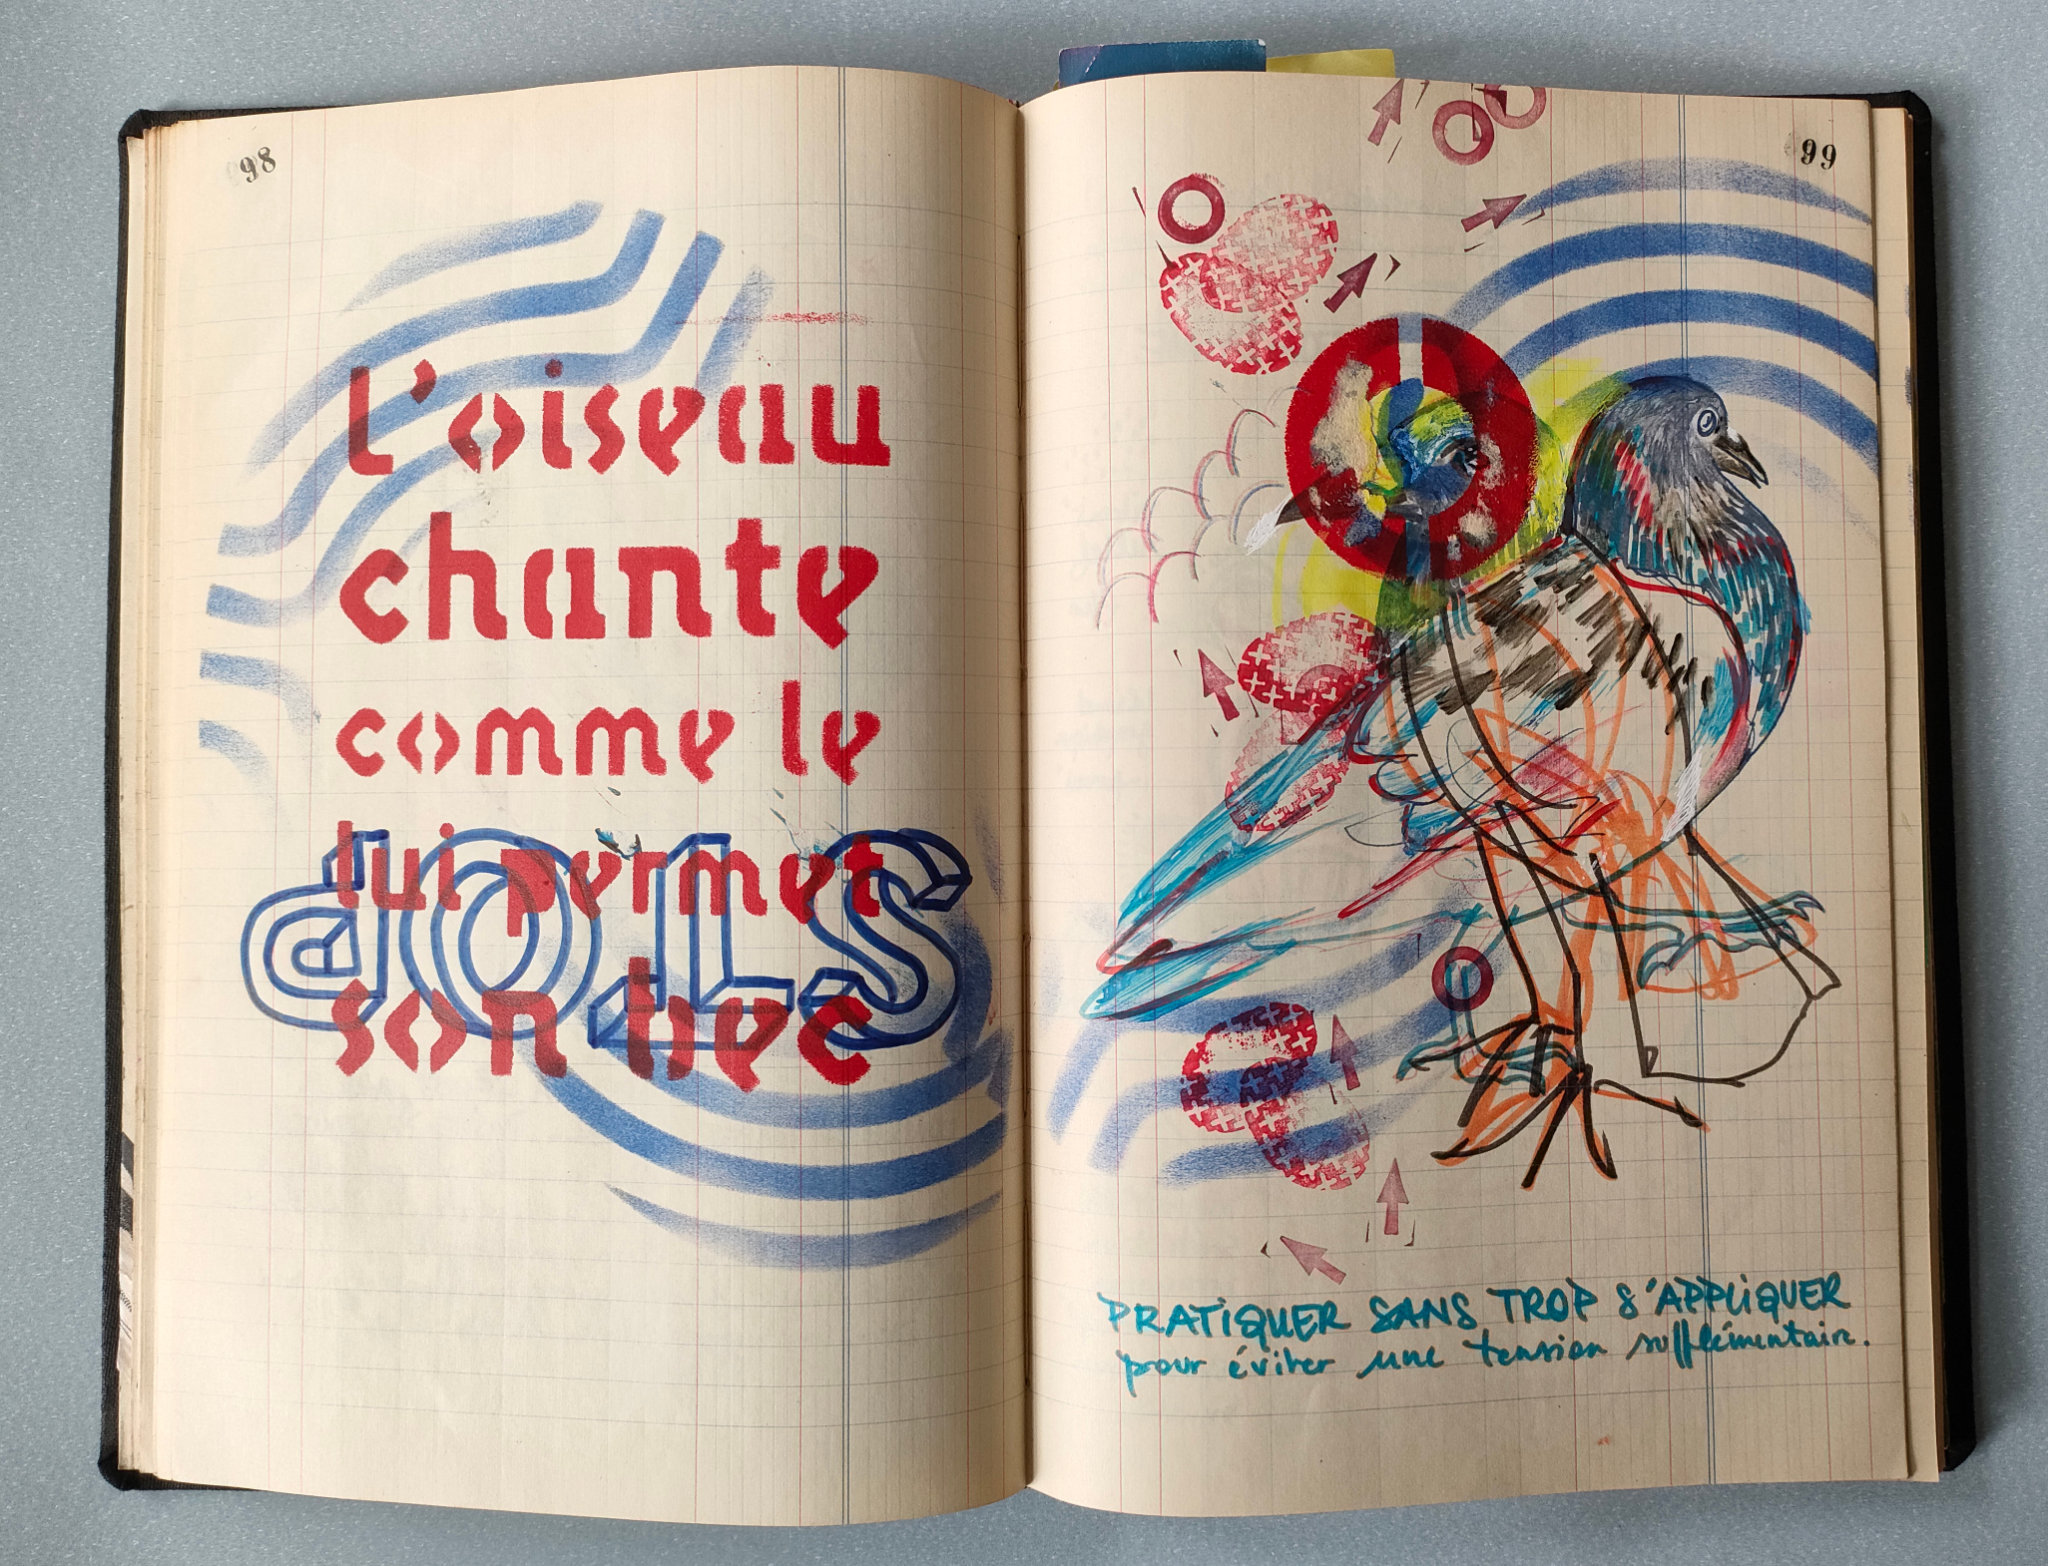 98
l'oiseau
chante
comme le
lui permet
son bec
STOP
99
PRATIQUER SANS TROP S'APPLIQUER
pour éviter une tension supplémentaire.